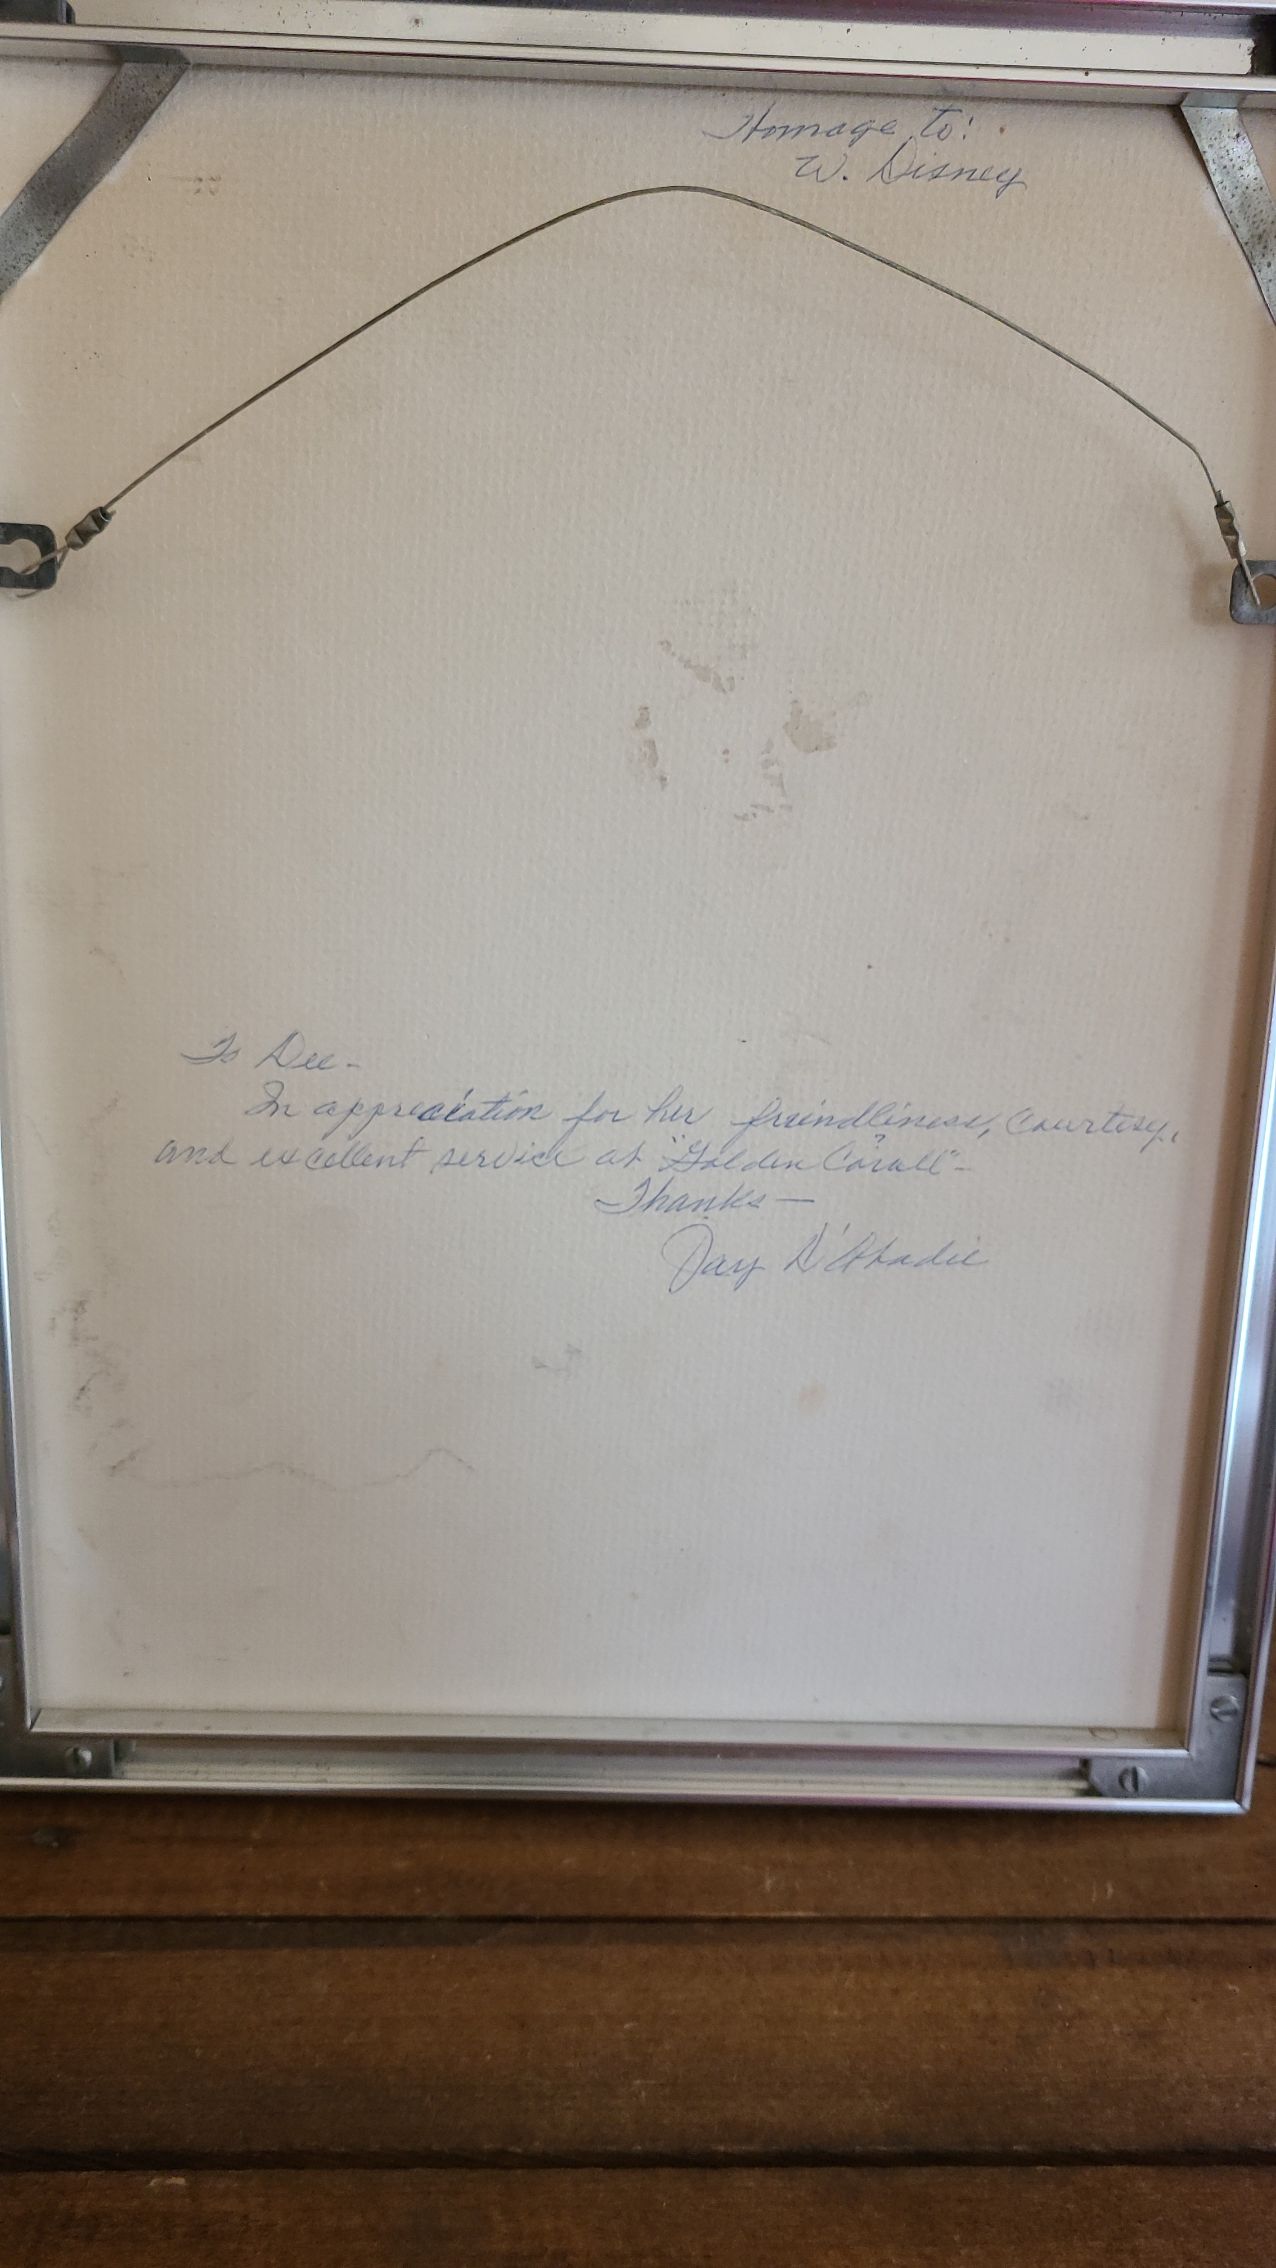 Homage to:
W. Disney
To Dee-
In appreciation for her freindliness, Courtesy,
and excellent service at "Golden Corall"-
Thanks—
Jay D'Abadie